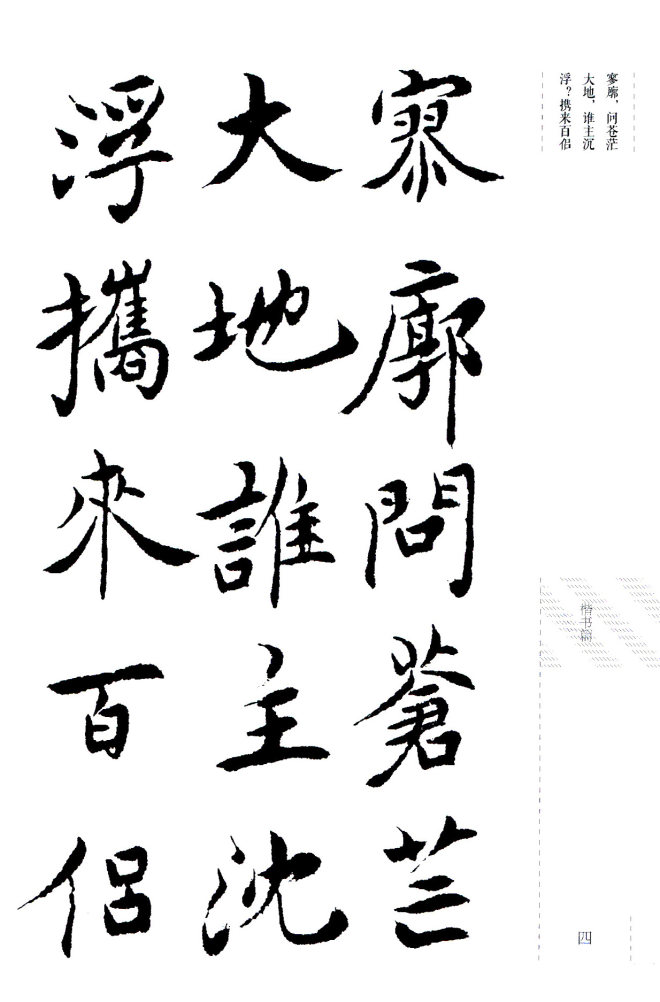 寥廓，问苍茫
大地，谁主沉
浮？携来百侣
楷书篇
四
寥廓問蒼茫
大地誰主沈
浮攜來百侶